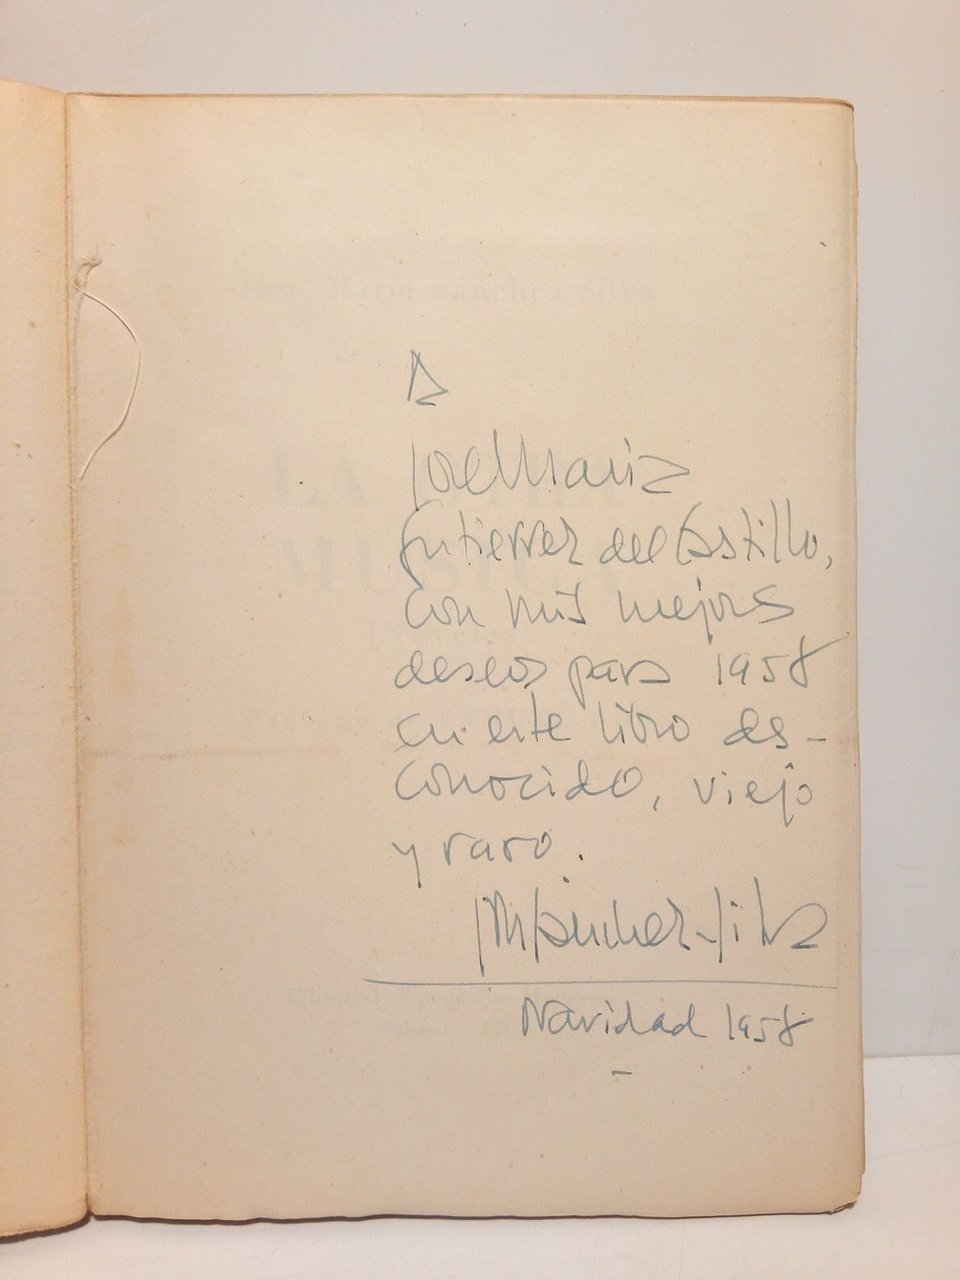 A
José María
Gutiérrez del Castillo,
con mis mejores
deseos para 1958
en este libro des-
conocido, viejo
y raro.
JM Sánchez-Silva
Navidad 1958